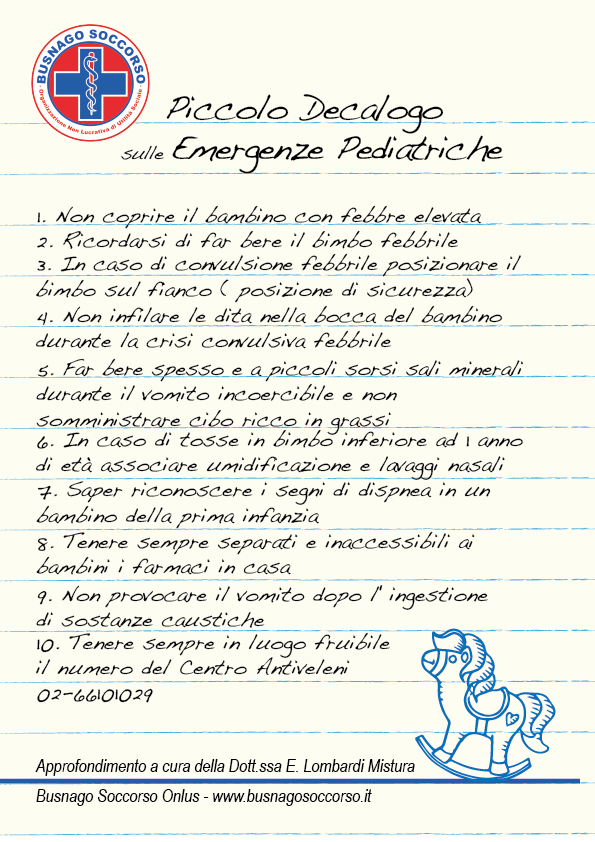 BUSNAGO SOCCORSO
Organizzazione Non Lucrativa di Utilità Sociale
Piccolo Decalogo
sulle Emergenze Pediatriche
1. Non coprire il bambino con febbre elevata
2. Ricordarsi di far bere il bimbo febbrile
3. In caso di convulsione febbrile posizionare il
bimbo sul fianco ( posizione di sicurezza)
4. Non infilare le dita nella bocca del bambino
durante la crisi convulsiva febbrile
5. Far bere spesso e a piccoli sorsi sali minerali
durante il vomito incoercibile e non
somministrare cibo ricco in grassi
6. In caso di tosse in bimbo inferiore ad 1 anno
di età associare umidificazione e lavaggi nasali
7. Saper riconoscere i segni di dispnea in un
bambino della prima infanzia
8. Tenere sempre separati e inaccessibili ai
bambini i farmaci in casa
9. Non provocare il vomito dopo l' ingestione
di sostanze caustiche
10. Tenere sempre in luogo fruibile
il numero del Centro Antiveleni
02-66101029
Approfondimento a cura della Dott.ssa E. Lombardi Mistura
Busnago Soccorso Onlus - www.busnagosoccorso.it